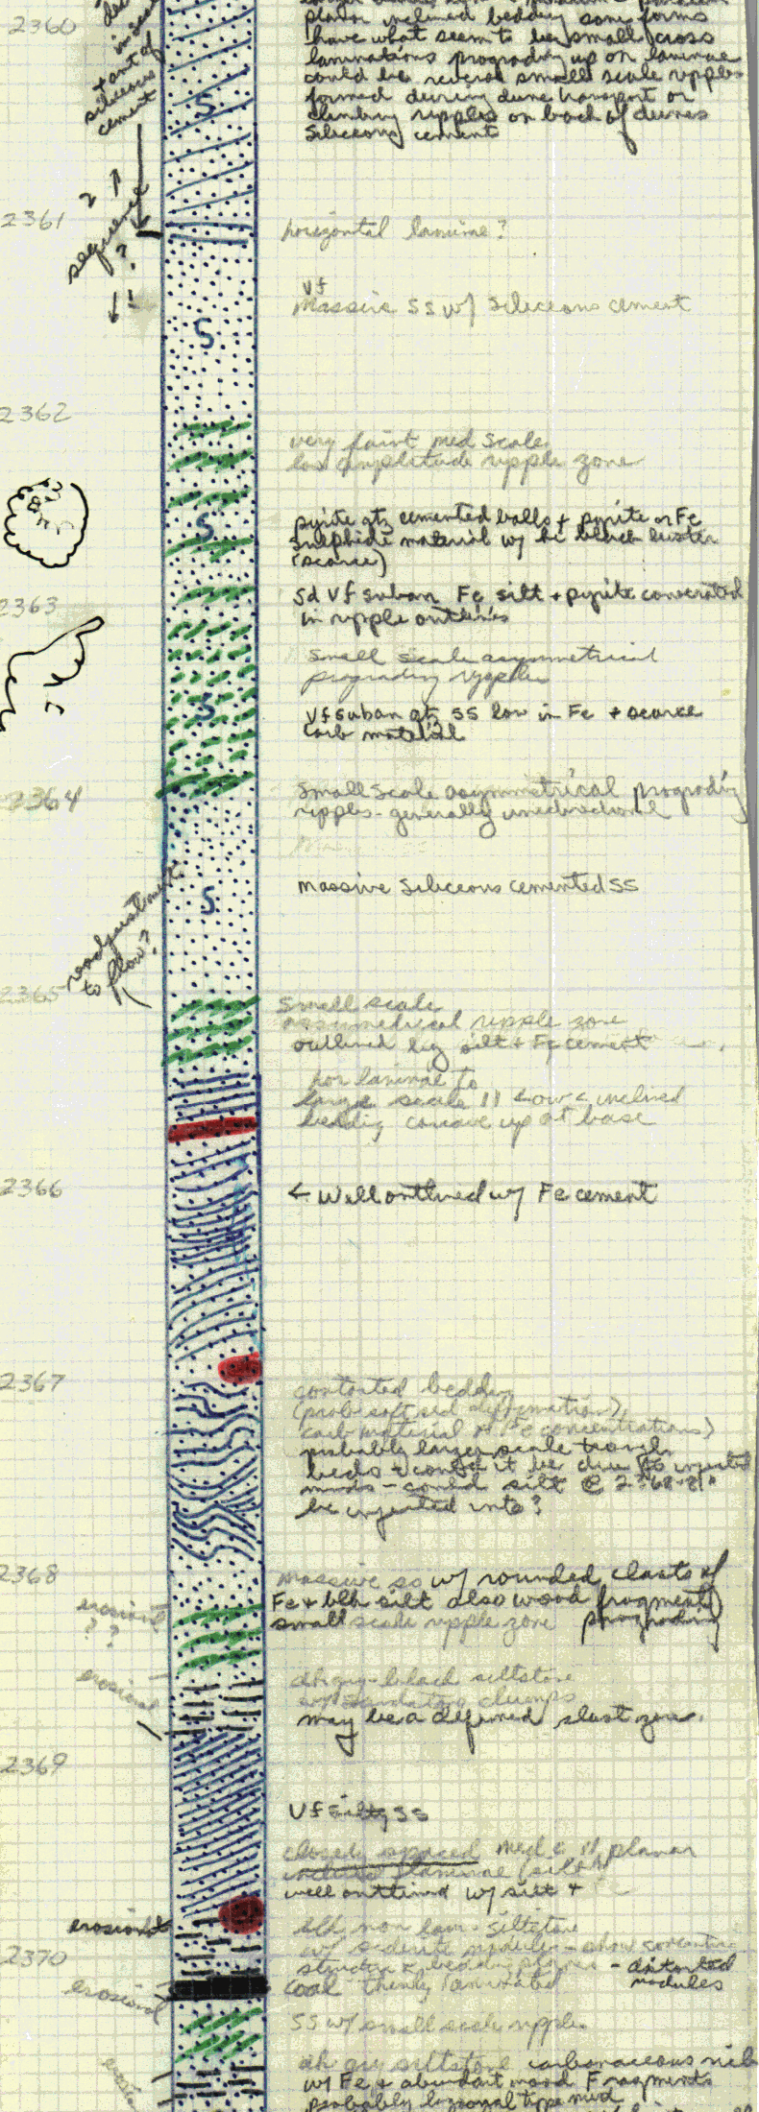 2360
planar inclined bedding some forms
have what seem to be small cross
laminations prograding up on laminae
could be reversal small scale ripples
formed during dune transport or
climbing ripples on back of dunes
siliceous cement
siliceous
cement
S
2361
sequence
?
horizontal laminae?
vf
Massive SS w/ siliceous cement
S
2362
very faint med scale
low amplitude ripple zone
pyrite qtz cemented balls + pyrite or Fe
sulphide material w/ hi black luster
(scarce)
S
2363
sd vf suban Fe silt + pyrite
in ripple outlines
small scale asymmetrical
prograding ripples
S
vf suban qtz SS low in Fe + scarce
carb material
2364
small scale asymmetrical prograding
ripples - generally unidirectional
massive siliceous cemented SS
S
readjustment
to flow?
2365
small scale
ripple zone
outlined by silt + Fe cement
hor laminae to
large scale // low < inclined
bedding concave up at base
2366
← Well outlined w/ Fe cement
2367
contorted bedding
(prob soft sed deformation)
carb material or Fe concentrations)
probably larger scale trough
beds - could it be due to injected
muds - could silt @ 2368.81
be injected into?
2368
massive SS w/ rounded clasts of
Fe + blk silt also wood fragments
small scale ripple zone prograding
erosional
??
erosional
dk gry-black siltstone
may be a deformed slust zone.
2369
vf silty SS
closely spaced med < // planar
inclined laminae (silt)
well outlined w/ silt +
erosional
blk non lam. siltstone
w/ siderite nodules - show
- distorted
nodules
2370
coal thinly laminated
erosional
SS w/ small scale ripples
dk gry siltstone carbonaceous rich
w/ Fe + abundant wood Fragments
probably type mud